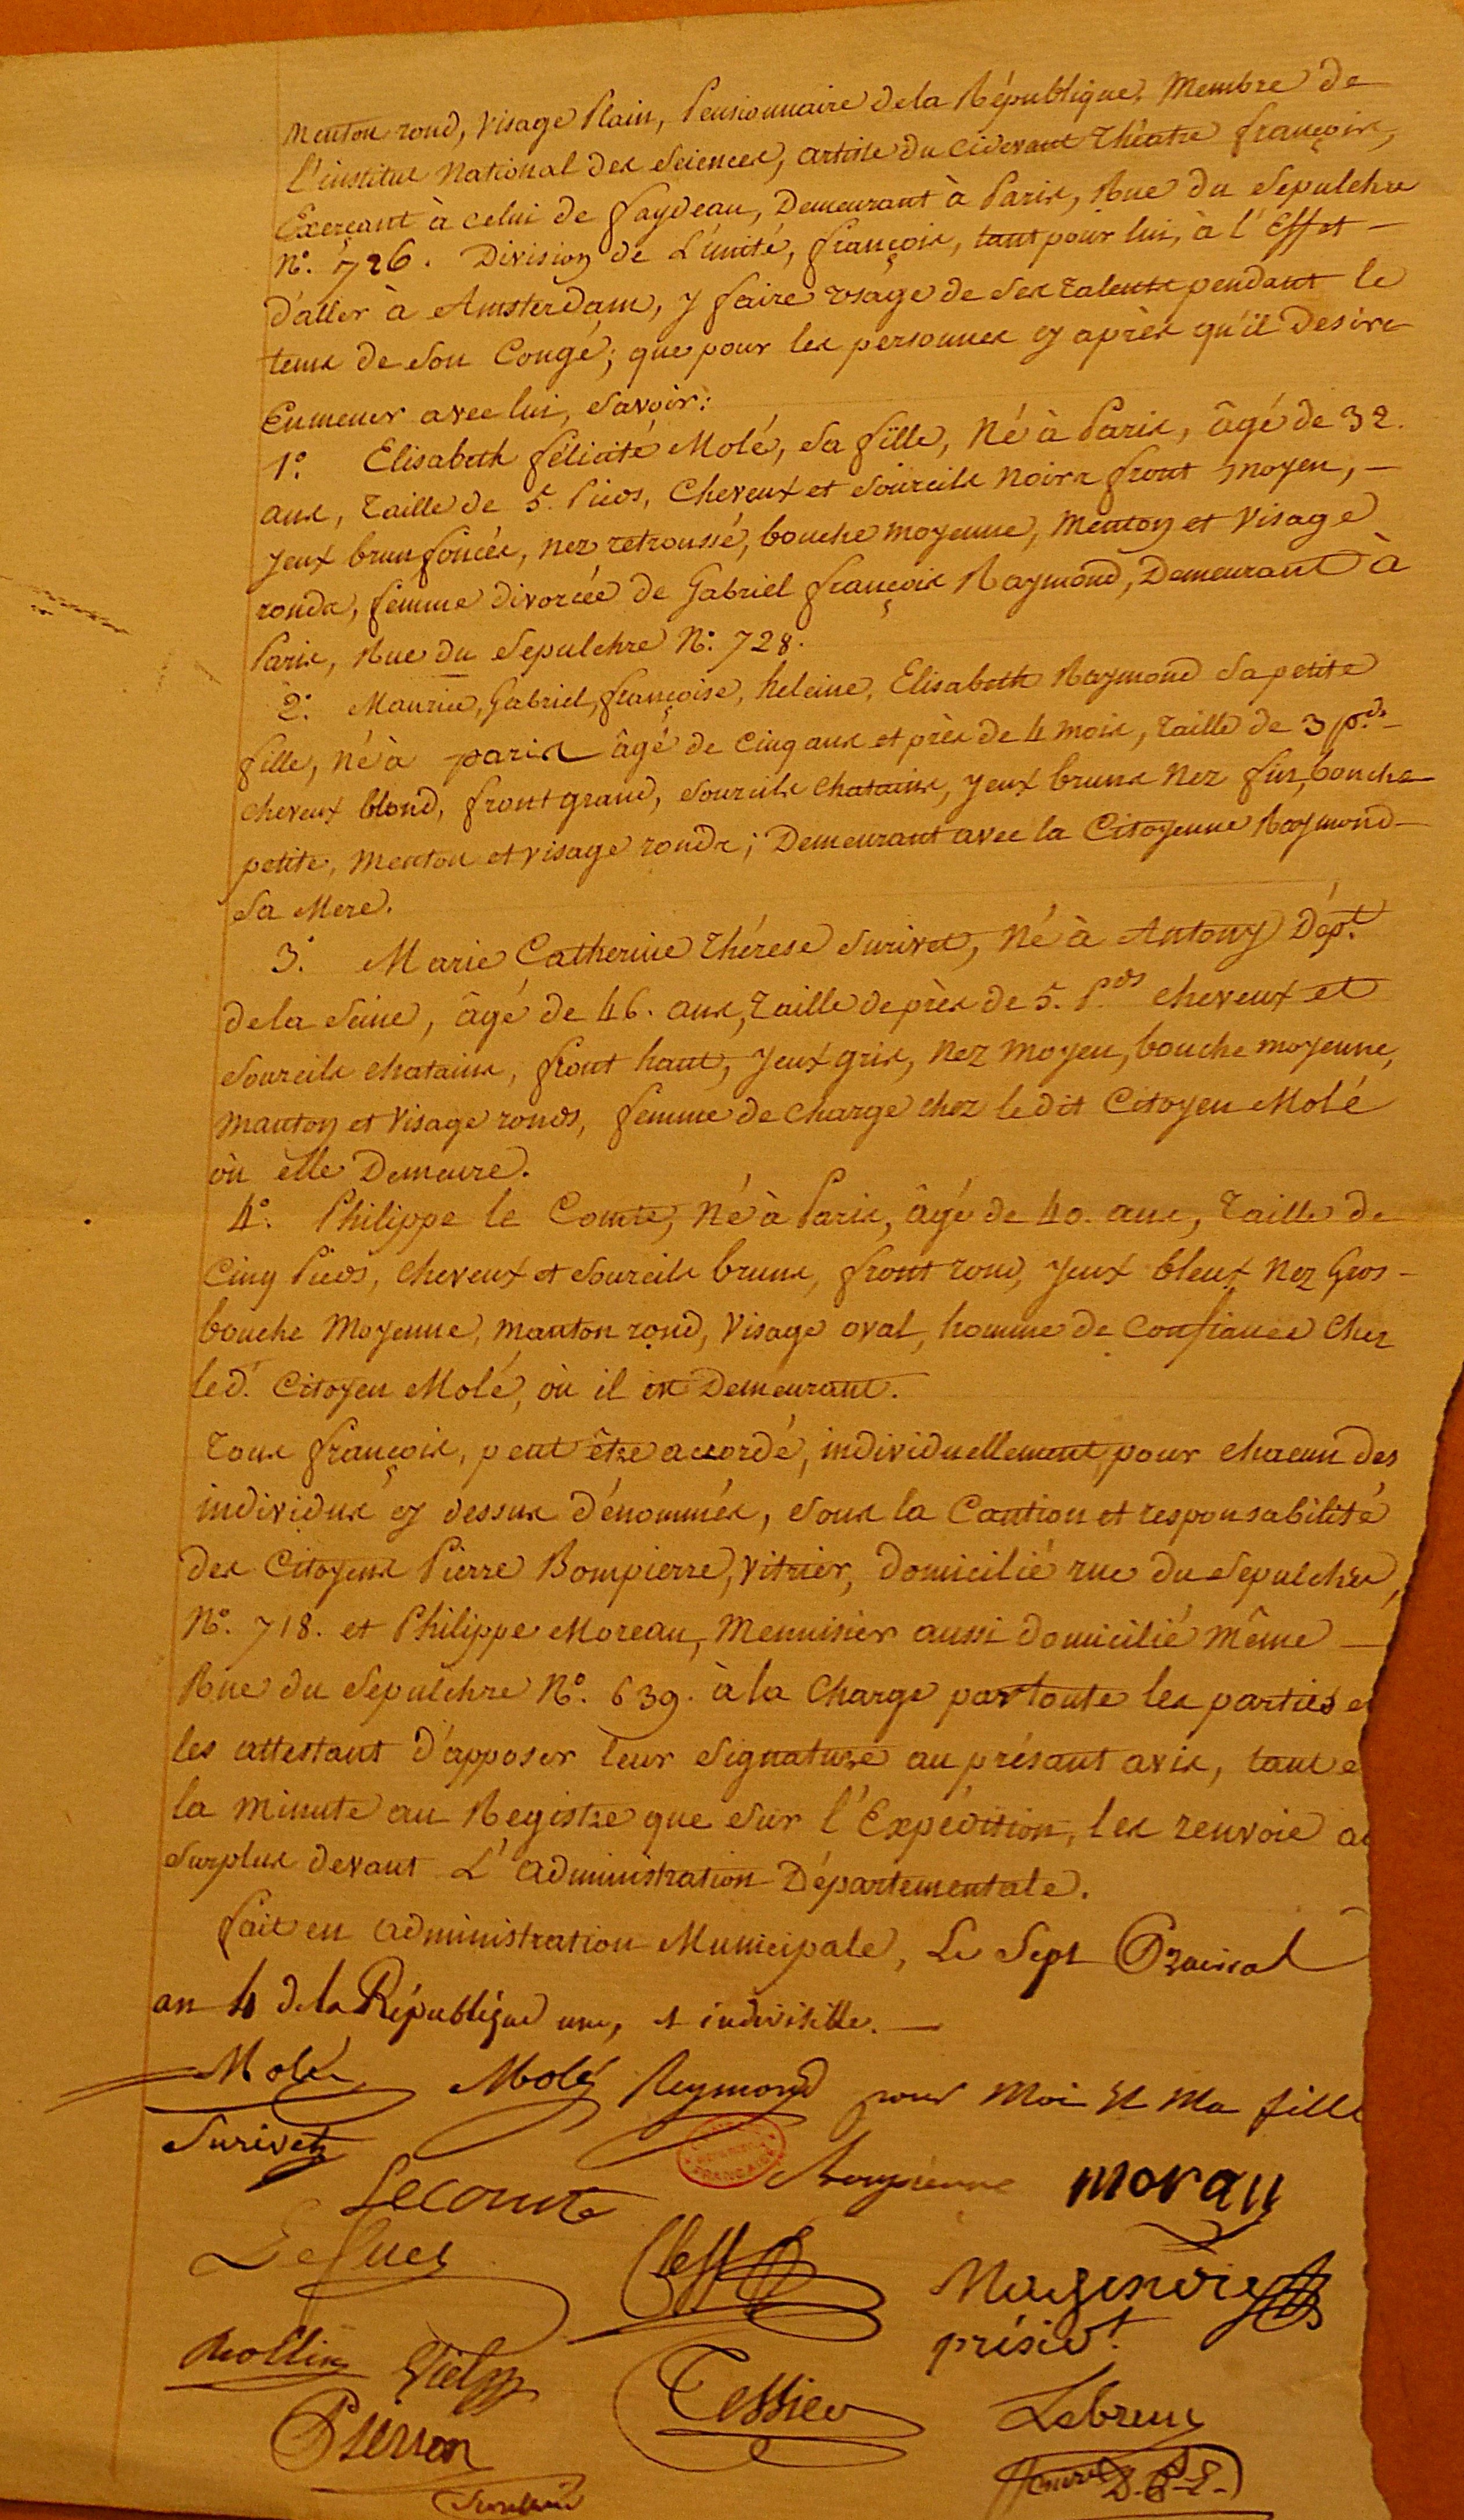 Menton rond, Visage Plain, Pensionnaire de la République, Membre de
L'institut National des Sciences, artiste du cidevant Théatre françois,
Exerçant à celui de faydeau, Demeurant à Paris, Rue du Sepulchre
N°. 726. Division de L'unité, françois, tant pour lui, à l'Effet -
d'aller à Amsterdam, y faire usage de ses talents pendant le
tems de son Congé; que pour les personnes cy après qu'il desire
Emmener avec lui, Savoir:
1°. Elisabeth félicité Molé, sa fille, Né à Paris, âgé de 32.
ans, Taille de 5. Pieds, Cheveux et Sourcils noirs front moyen, -
yeux brun foncés, nez retroussé, bouche moyenne, Menton et Visage
ronds, femme divorcée de Gabriel françois Raymond, Demeurant à
Paris, Rue du Sepulchre N°. 728.
2°. Maurice, Gabriel, françoise, heleine, Elisabeth Raymond sa petite
fille, né à paris âgé de cinq ans et près de 4 mois, taille de 3 p.ds -
cheveux blond, front grand, sourcils chatains, yeux bruns nez fin, bouche
petite, Menton et visage ronds; Demeurant avec la Citoyenne Raymond -
Sa Mere.
3°. Marie Catherine Thérese Surivet, Né à Antony Dép.t
de la Seine, âgé de 46. ans, Taille de près de 5. P.ds cheveux et
Sourcils chatains, front haut, yeux gris, nez moyen, bouche moyenne,
manton et Visage ronds, femme de charge chez le dit Citoyen Molé
où elle Demeure.
4°. Philippe le Comte, Né à Paris, âgé de 40. ans, Taille de
Cinq Pieds, cheveux et Sourcils bruns, front rond, yeux bleux Nez Gros -
bouche Moyenne, manton rond, Visage oval, homme de Confiance Chez
led.t Citoyen Molé, où il est Demeurant.
Tous françois, peut être accordé, individuellement, pour chacun des
individus cy dessus dénommés, sous la Caution et responsabilité
des Citoyens Pierre Bompierre, Vitrier, domicilié rue du Sepulchre,
N°. 718. et Philippe Moreau, Menuisier aussi domicilié même -
Rue du Sepulchre N°. 639. à la Charge par toute les parties e
les attestant d'apposer leur Signature au présant avis, tant e
la Minute au Registre que sur l'Expédition, les renvoie a
Surplus devant L'administration Départementale.
fait en administration Municipale, Le Sept Prairial
an 4 de la République une, et indivisible. -
Molé Molé Reymond pour Moi et Ma fille
Surivet Bompierre morau
Lecomte
Magendie
présid.t
Rollin Tessier Lebrun
Pierron